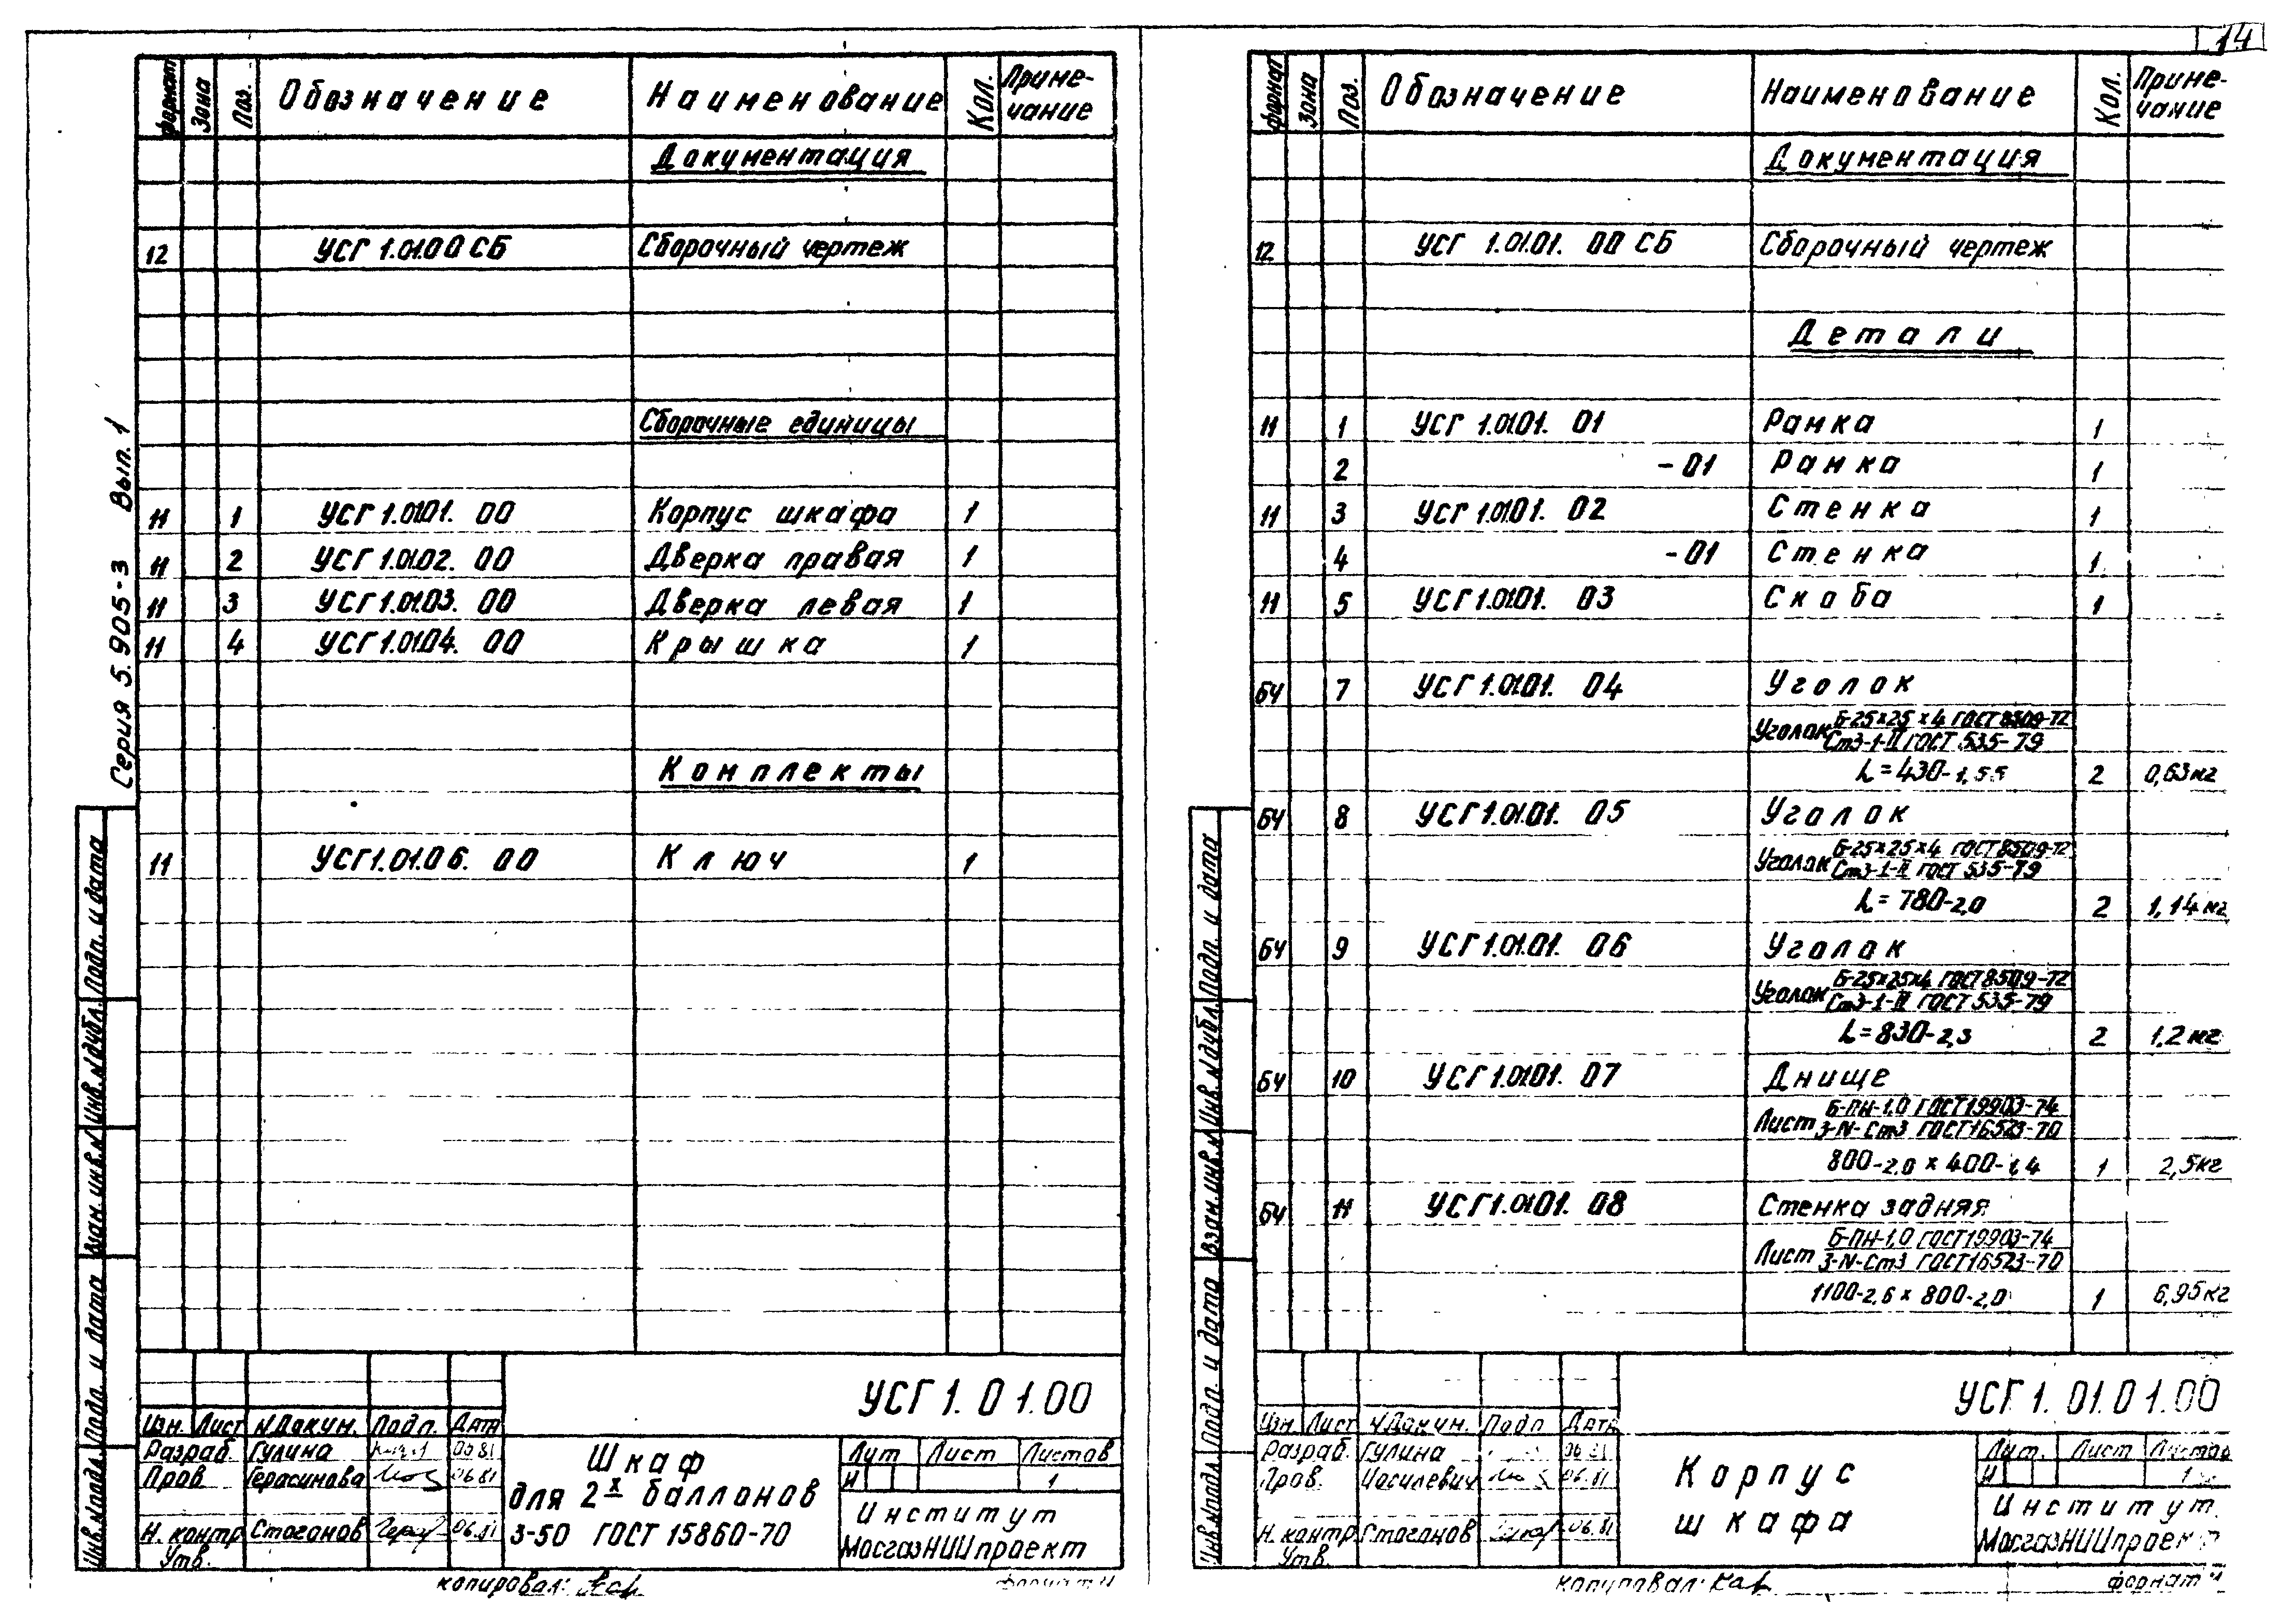 14
формат Зона Поз. Обозначение Наименование Кол. Приме-
чание
Документация
12 УСГ 1.01.00 СБ Сборочный чертеж
Сборочные единицы
11 1 УСГ 1.01.01. 00 Корпус шкафа 1
11 2 УСГ 1.01.02. 00 Дверка правая 1
11 3 УСГ 1.01.03. 00 Дверка левая 1
11 4 УСГ 1.01.04. 00 Крышка 1
Комплекты
11 УСГ 1.01.06. 00 Ключ 1
Серия 5.905-3 Вып. 1
Подп. и дата
Инв.№дубл.
Взам.инв.№
Подп. и дата
Инв.№подл.
УСГ 1. 01.00
Изм. Лист №Докум. Подп. Дата
Разраб. Гулина 06.81
Пров. Герасимова 06.81
Н. контр Стоганов 06.81
Утв.
Шкаф
для 2х баллонов
3-50 ГОСТ 15860-70
Лит Лист Листов
И 1
Институт
МосгазНИИпроект
копировал:
формат 11
формат Зона Поз. Обозначение Наименование Кол. Приме-
чание
Документация
12 УСГ 1.01.01. 00 СБ Сборочный чертеж
Детали
11 1 УСГ 1.01.01. 01 Рамка 1
2 -01 Рамка 1
11 3 УСГ 1.01.01. 02 Стенка 1
4 -01 Стенка 1
11 5 УСГ 1.01.01. 03 Скоба 1
БЧ 7 УСГ 1.01.01. 04 Уголок
Уголок Б-25х25х4 ГОСТ 8509-72
Ст3-1-II ГОСТ 535-79
L=430-1,55 2 0,63кг
БЧ 8 УСГ 1.01.01. 05 Уголок
Уголок Б-25х25х4 ГОСТ 8509-72
Ст3-1-II ГОСТ 535-79
L=780-2,0 2 1,14кг
БЧ 9 УСГ 1.01.01. 06 Уголок
Уголок Б-25х25х4 ГОСТ 8509-72
Ст3-1-II ГОСТ 535-79
L=830-2,3 2 1,2кг
БЧ 10 УСГ 1.01.01. 07 Днище
Лист Б-ПН-1,0 ГОСТ19903-74
3-N-Ст3 ГОСТ16523-70
800-2,0 х 400-1,4 1 2,5кг
БЧ 11 УСГ 1.01.01. 08 Стенка задняя
Лист Б-ПН-1,0 ГОСТ19903-74
3-N-Ст3 ГОСТ16523-70
1100-2,6 х 800-2,0 1 6,95кг
Подп. и дата
Инв.№дубл.
Взам.инв.№
Подп. и дата
Инв.№подл.
УСГ 1. 01.01.00
Изм. Лист №Докум. Подп Дата
Разраб. Гулина 06.81
Пров. Иосилевич 06.81
Н. контр Стоганов 06.81
Утв.
Корпус
шкафа
Лит. Лист Листов
И 1
Институт
МосгазНИИпроект
копировал:
формат 11